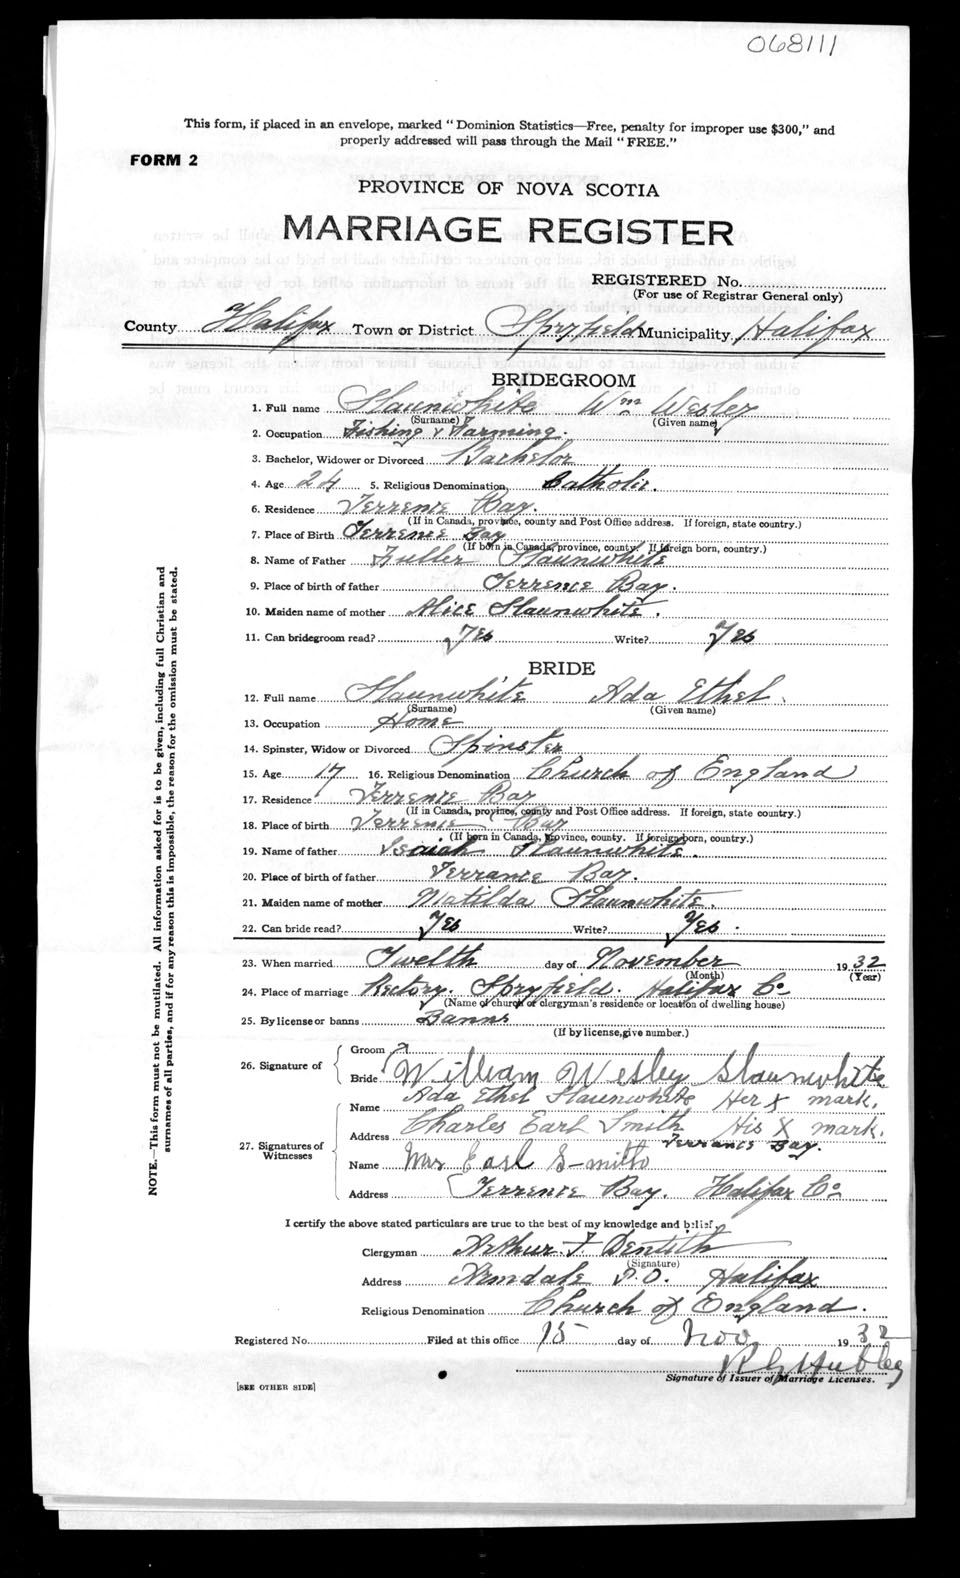 068111
This form, if placed in an envelope, marked "Dominion Statistics—Free, penalty for improper use $300," and
properly addressed will pass through the Mail "FREE."
FORM 2
PROVINCE OF NOVA SCOTIA
MARRIAGE REGISTER
REGISTERED No.
(For use of Registrar General only)
County Halifax Town or District Spryfield Municipality Halifax
BRIDEGROOM
1. Full name Slaunwhite Wm Wesley
(Surname) (Given name)
2. Occupation Fishing & Farming.
3. Bachelor, Widower or Divorced Bachelor
4. Age 24 5. Religious Denomination Catholic.
6. Residence Terrence Bay.
(If in Canada, province, county and Post Office address. If foreign, state country.)
7. Place of Birth Terrence Bay
(If born in Canada, province, county. If foreign born, country.)
8. Name of Father Fuller Slaunwhite
9. Place of birth of father Terrence Bay.
10. Maiden name of mother Alice Slaunwhite.
11. Can bridegroom read? Yes Write? Yes
BRIDE
12. Full name Slaunwhite Ada Ethel.
(Surname) (Given name)
13. Occupation Home
14. Spinster, Widow or Divorced Spinster
15. Age 17 16. Religious Denomination Church of England
17. Residence Terrence Bay
(If in Canada, province, county and Post Office address. If foreign, state country.)
18. Place of birth Terrence Bay
(If born in Canada, province, county. If foreign born, country.)
19. Name of father Isaiah Slaunwhite.
20. Place of birth of father Terrance Bay.
21. Maiden name of mother Matilda Slaunwhite.
22. Can bride read? Yes Write? Yes.
23. When married Twelth day of November 1932
(Month) (Year)
24. Place of marriage Rectory. Spryfield. Halifax Co
(Name of church or clergyman's residence or location of dwelling house)
25. By license or banns Banns
(If by license, give number.)
26. Signature of Groom
Bride William Wesley Slaunwhite
Ada Ethel Slaunwhite Her X mark.
27. Signatures of Witnesses Name
Charles Earl Smith His X mark.
Address Terrance Bay.
Name Mrs Earl Smith
Address Terrence Bay. Halifax Co
I certify the above stated particulars are true to the best of my knowledge and belief,
Clergyman Arthur F. Dentith
(Signature)
Address Armdale P.O. Halifax
Religious Denomination Church of England.
Registered No. Filed at this office 15 day of Nov 1932
R G Hubley
Signature of Issuer of Marriage Licenses.
[SEE OTHER SIDE]
NOTE.—This form must not be mutilated. All information asked for is to be given, including full Christian and
surnames of all parties, and if for any reason this is impossible, the reason for the omission must be stated.